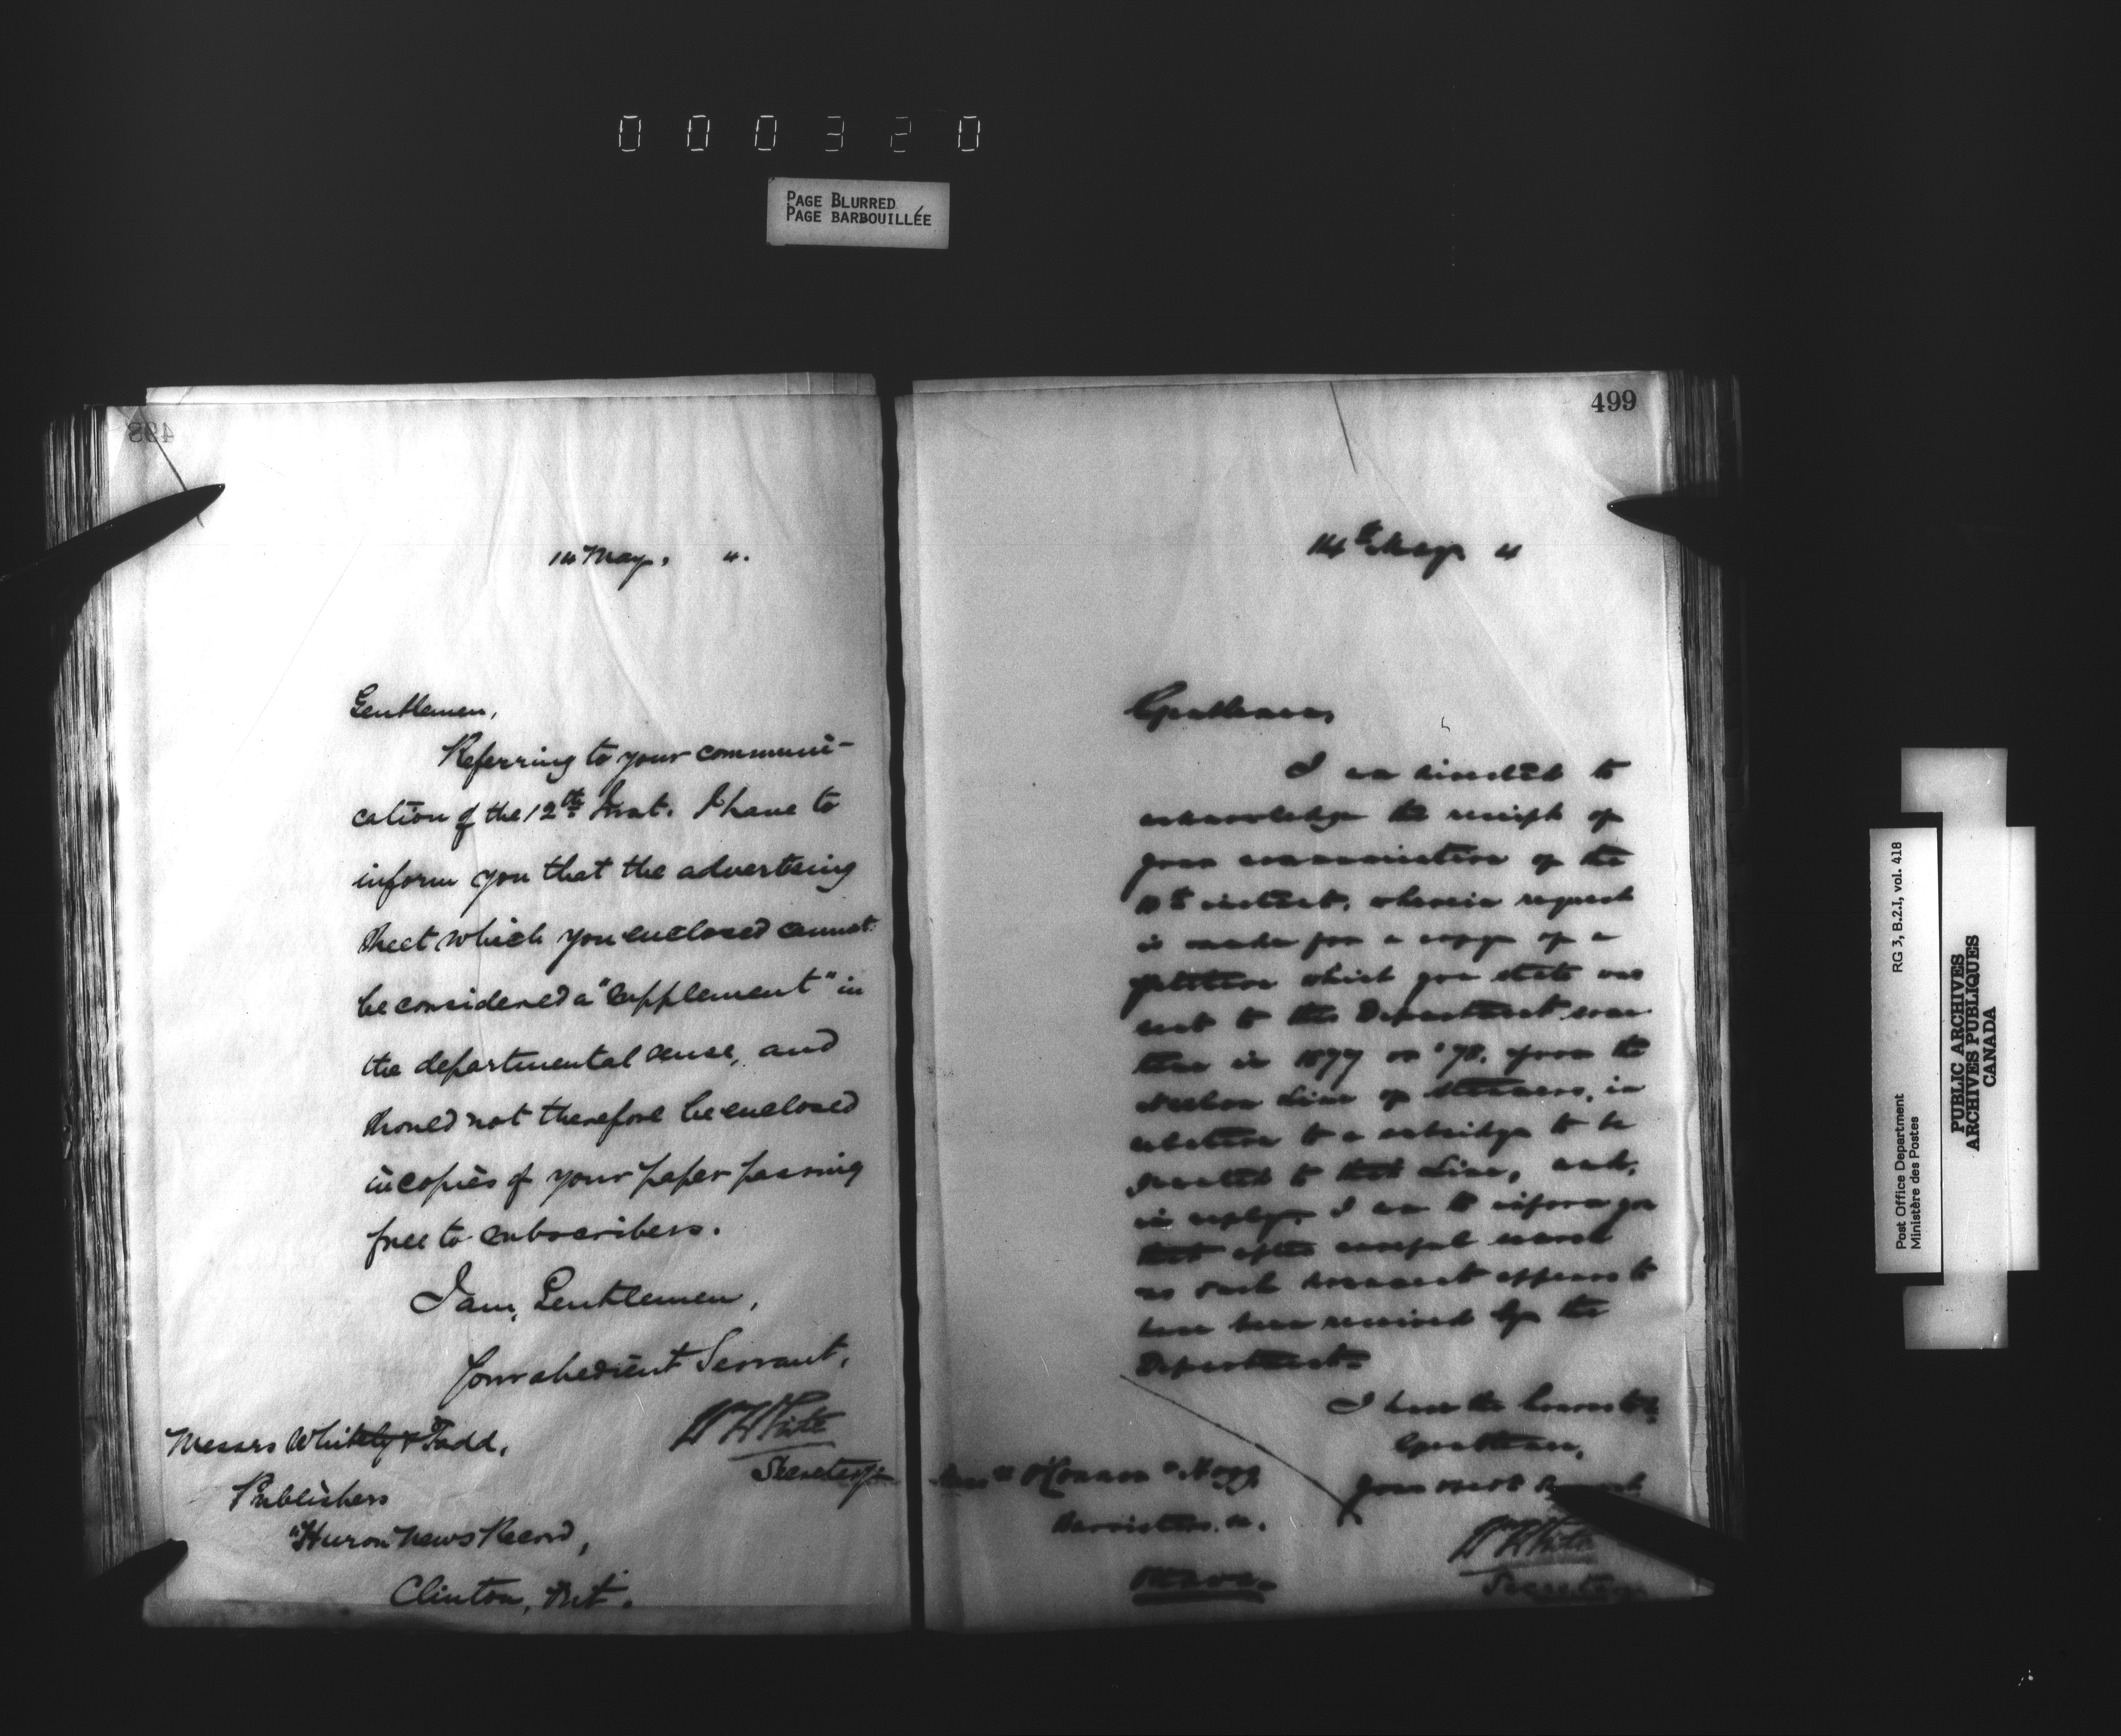 000320
PAGE BLURRED
PAGE BARBOUILLÉE
498
14 May, ".
Gentlemen,
Referring to your communi-
cation of the 12th Inst. I have to
inform you that the advertising
sheet which you enclosed cannot
be considered a "supplement" in
the departmental sense, and
should not therefore be enclosed
in copies of your paper passing
free to subscribers.
I am, Gentlemen,
Your obedient Servant,
Wm White
Secretary
Messrs Whitely & Todd,
Publishers
"Huron News Record,
Clinton, Ont.
499
14th May "
Gentlemen,
I am directed to
acknowledge the receipt of
your communication of the
instant, wherein request
is made for a copy of a
petition which you state was
sent to this Department some
time in 1877 or '78, from the
Line of Steamers, in
relation to a subsidy to be
granted to that Line, and,
in reply, I am to inform you
that after careful search
no such document appears to
have been received by the
Department.
I have the honor to be
Gentlemen,
Your most
Wm White
Secretary
Messrs O'Connor & Hogg,
Barristers &c.
Ottawa.
Post Office Department RG 3, B.2.I, vol. 418
Ministère des Postes
PUBLIC ARCHIVES
ARCHIVES PUBLIQUES
CANADA